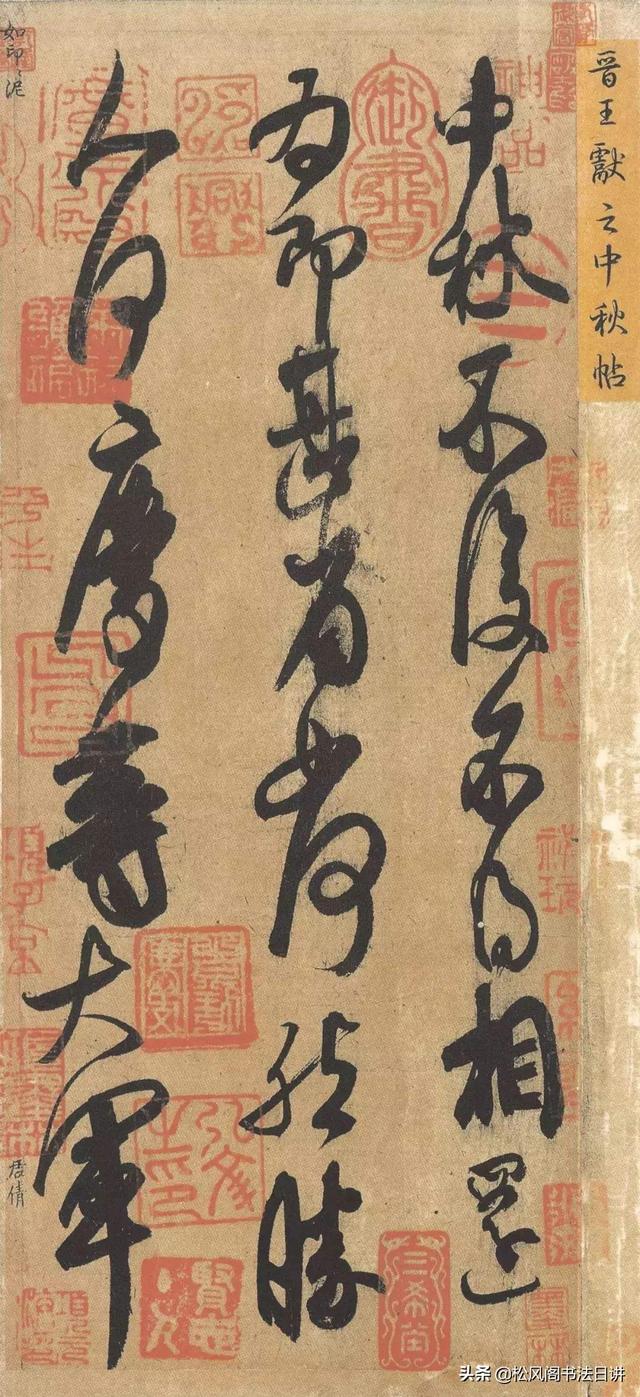 晉王獻之中秋帖
中秋不復不得相還
為即甚省如何然勝
人何慶等大軍
御書
神品
項子京
如印泥
居倩
头条 @松风阁书法日讲